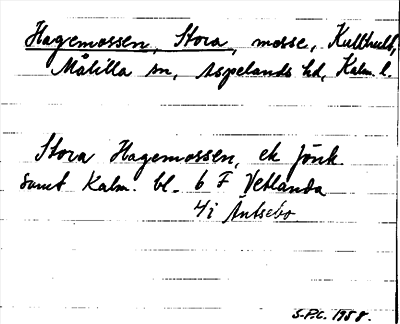 Hagemossen, Stora, mosse, Kulltvult,
Målilla sn, Aspelands hd, Kalm. l.
Stora Hagemossen, ek Jönk
samt Kalm. bl. 6 F Vetlanda
4i Äntsebo
S.P.C. 1958.